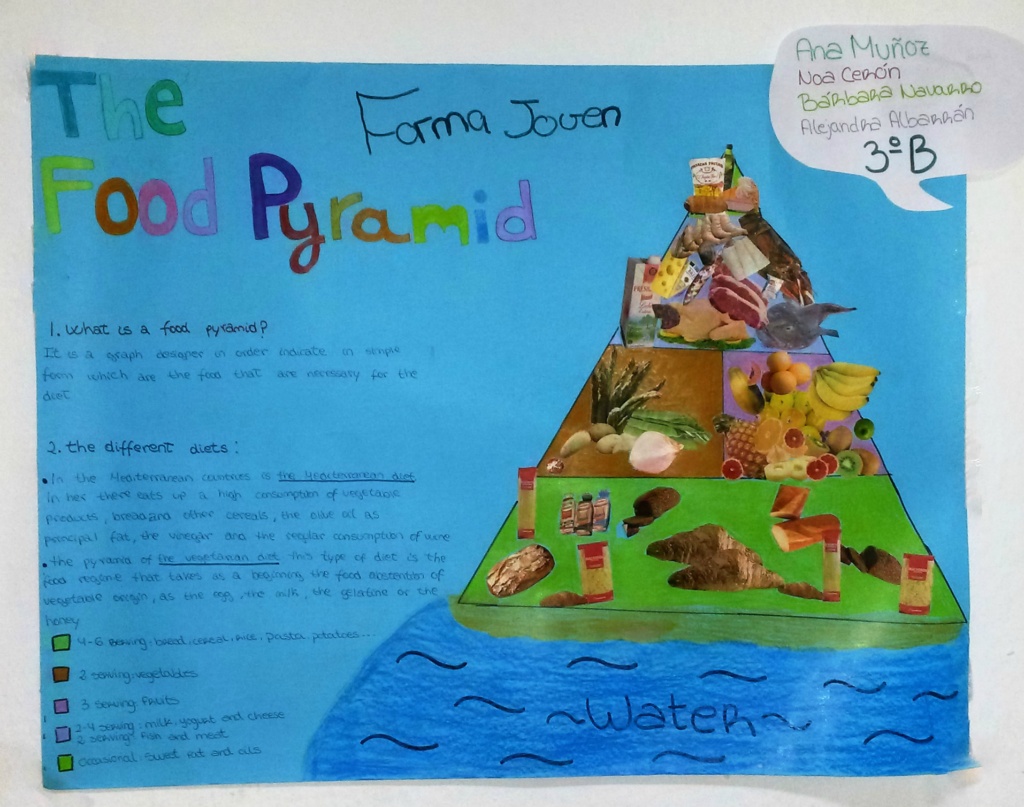 The
Food Pyramid
Forma Joven
Ana Muñoz
Noa Cerón
Bárbara Navarro
Alejandra Albarrán
3ºB
1. What is a food pyramid?
It is a graph designer in order indicate in simple
form which are the food that are necessary for the
diet
2. the different diets:
• In the Mediterranean countries is the Mediterranean diet
In her there eats up a high consumption of vegetable
products, bread and other cereals, the olive oil as
principal fat, the vinegar and the regular consumption of wine
• the pyramid of the vegetarian diet this type of diet is the
food regime that takes as a beginning the food abstention of
vegetable origin, as the egg, the milk, the gelatine or the
honey
4-6 serving: bread, cereal, rice, pasta, potatoes...
2 serving: vegetables
3 serving: fruits
2-4 serving: milk, yogurt and cheese
2 serving: fish and meat
occasional: sweet fat and oils
~Water~